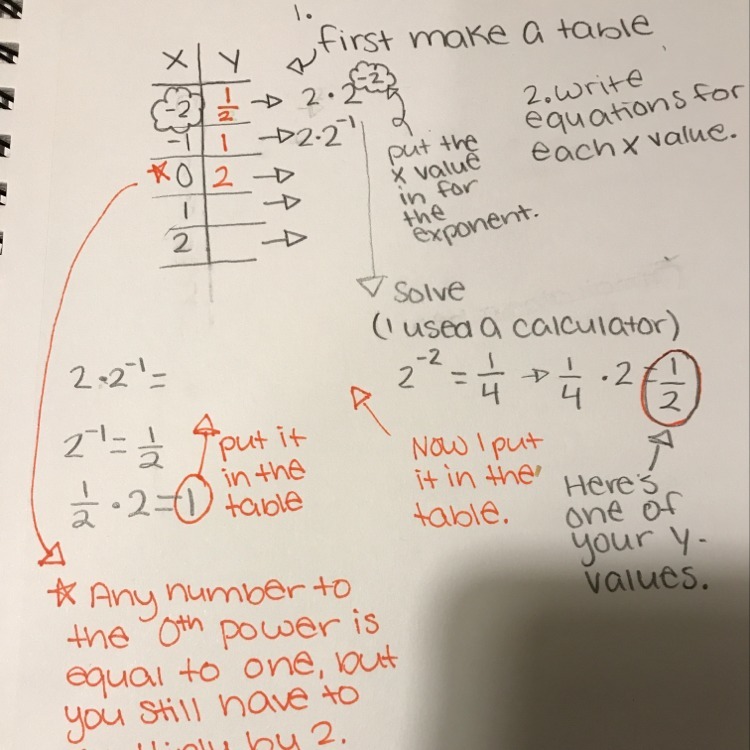 1.
first make a table
X Y
-2 1/2 → 2 · 2^-2
-1 1 → 2·2^-1
☆ 0 2 →
1 →
2 →
put the
x value
in for
the
exponent.
2. Write
equations for
each x value.
Solve
(I used a calculator)
2^-2 = 1/4 → 1/4 · 2 = 1/2
2·2^-1 =
2^-1 = 1/2
1/2 · 2 = 1
put it
in the
table
Now I put
it in the
table.
Here's
one of
your y-
values.
☆ Any number to
the 0th power is
equal to one, but
you still have to
by 2.